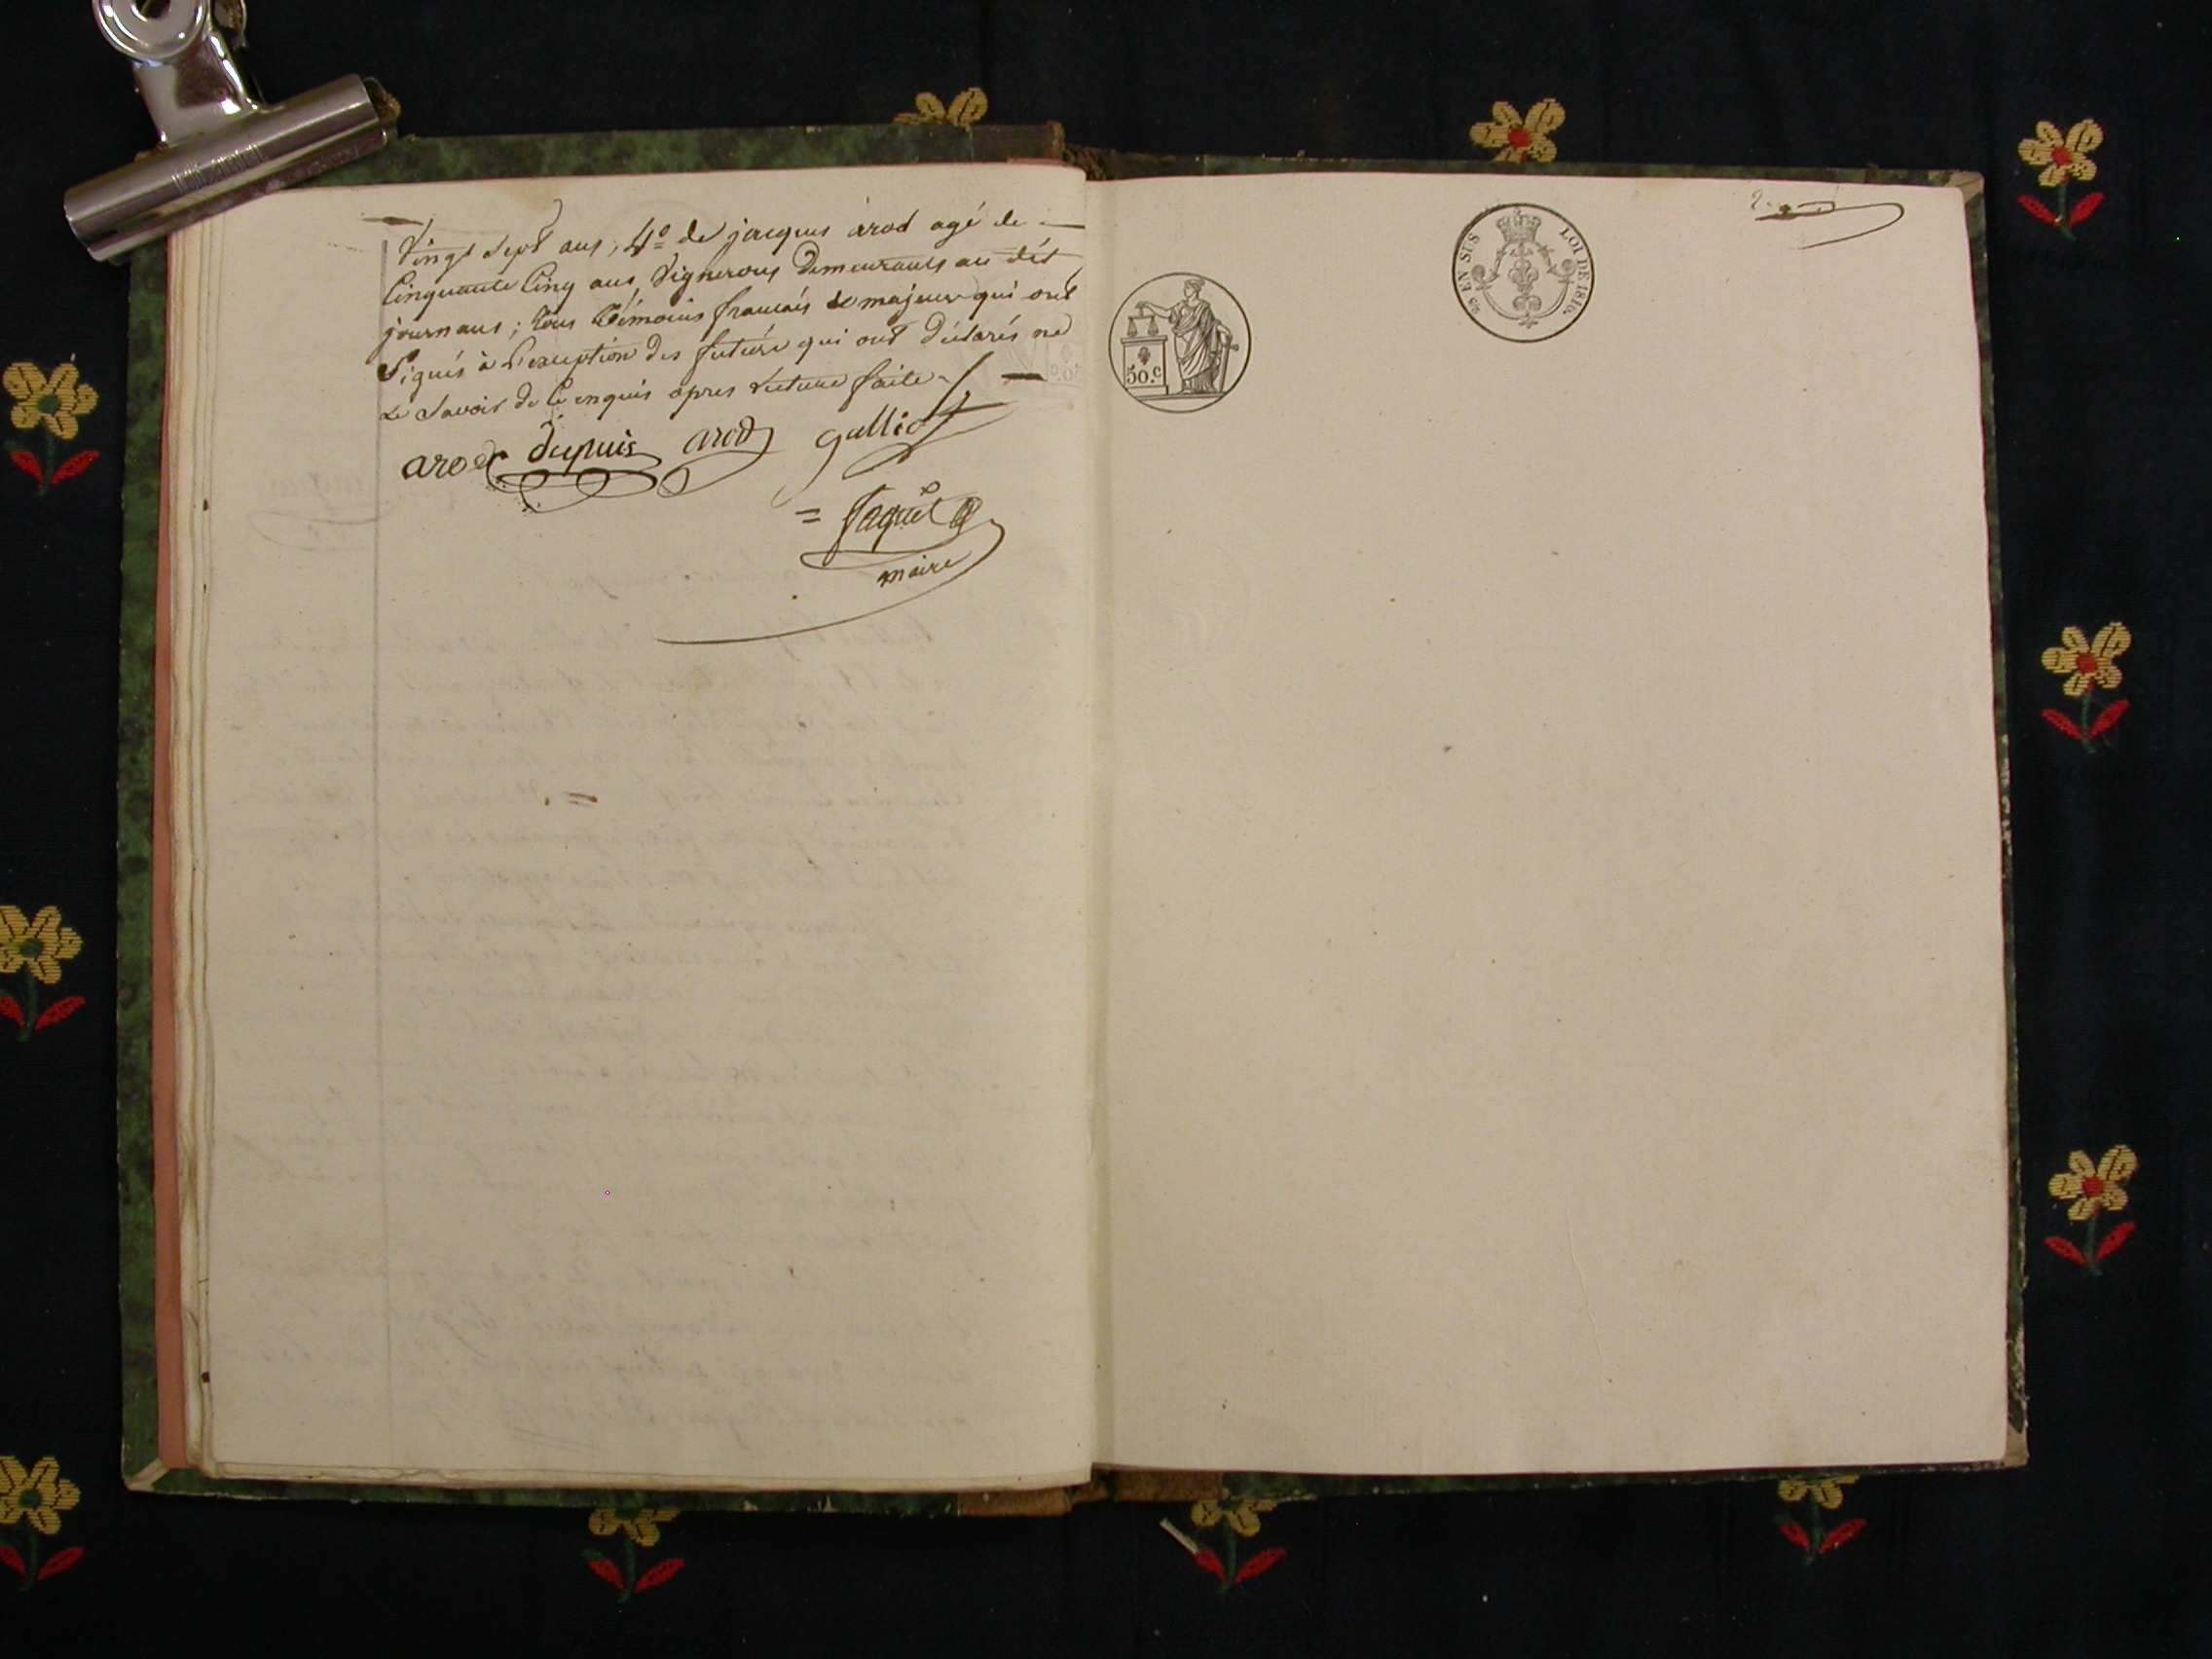 Vingt Sept ans, 4º de jacques arod agé de
Cinquante Cinq ans, Vignerons demeurants au dit
journans; tous témoins francais & majeur qui ont
Signés à l'exception des futurs qui ont déclarés ne
Le Savoir de Ce enquis apres Lecture faite
arod dupuis arod galliot
= faguet
maire
50.c
EN SUS LOI DE 1816.